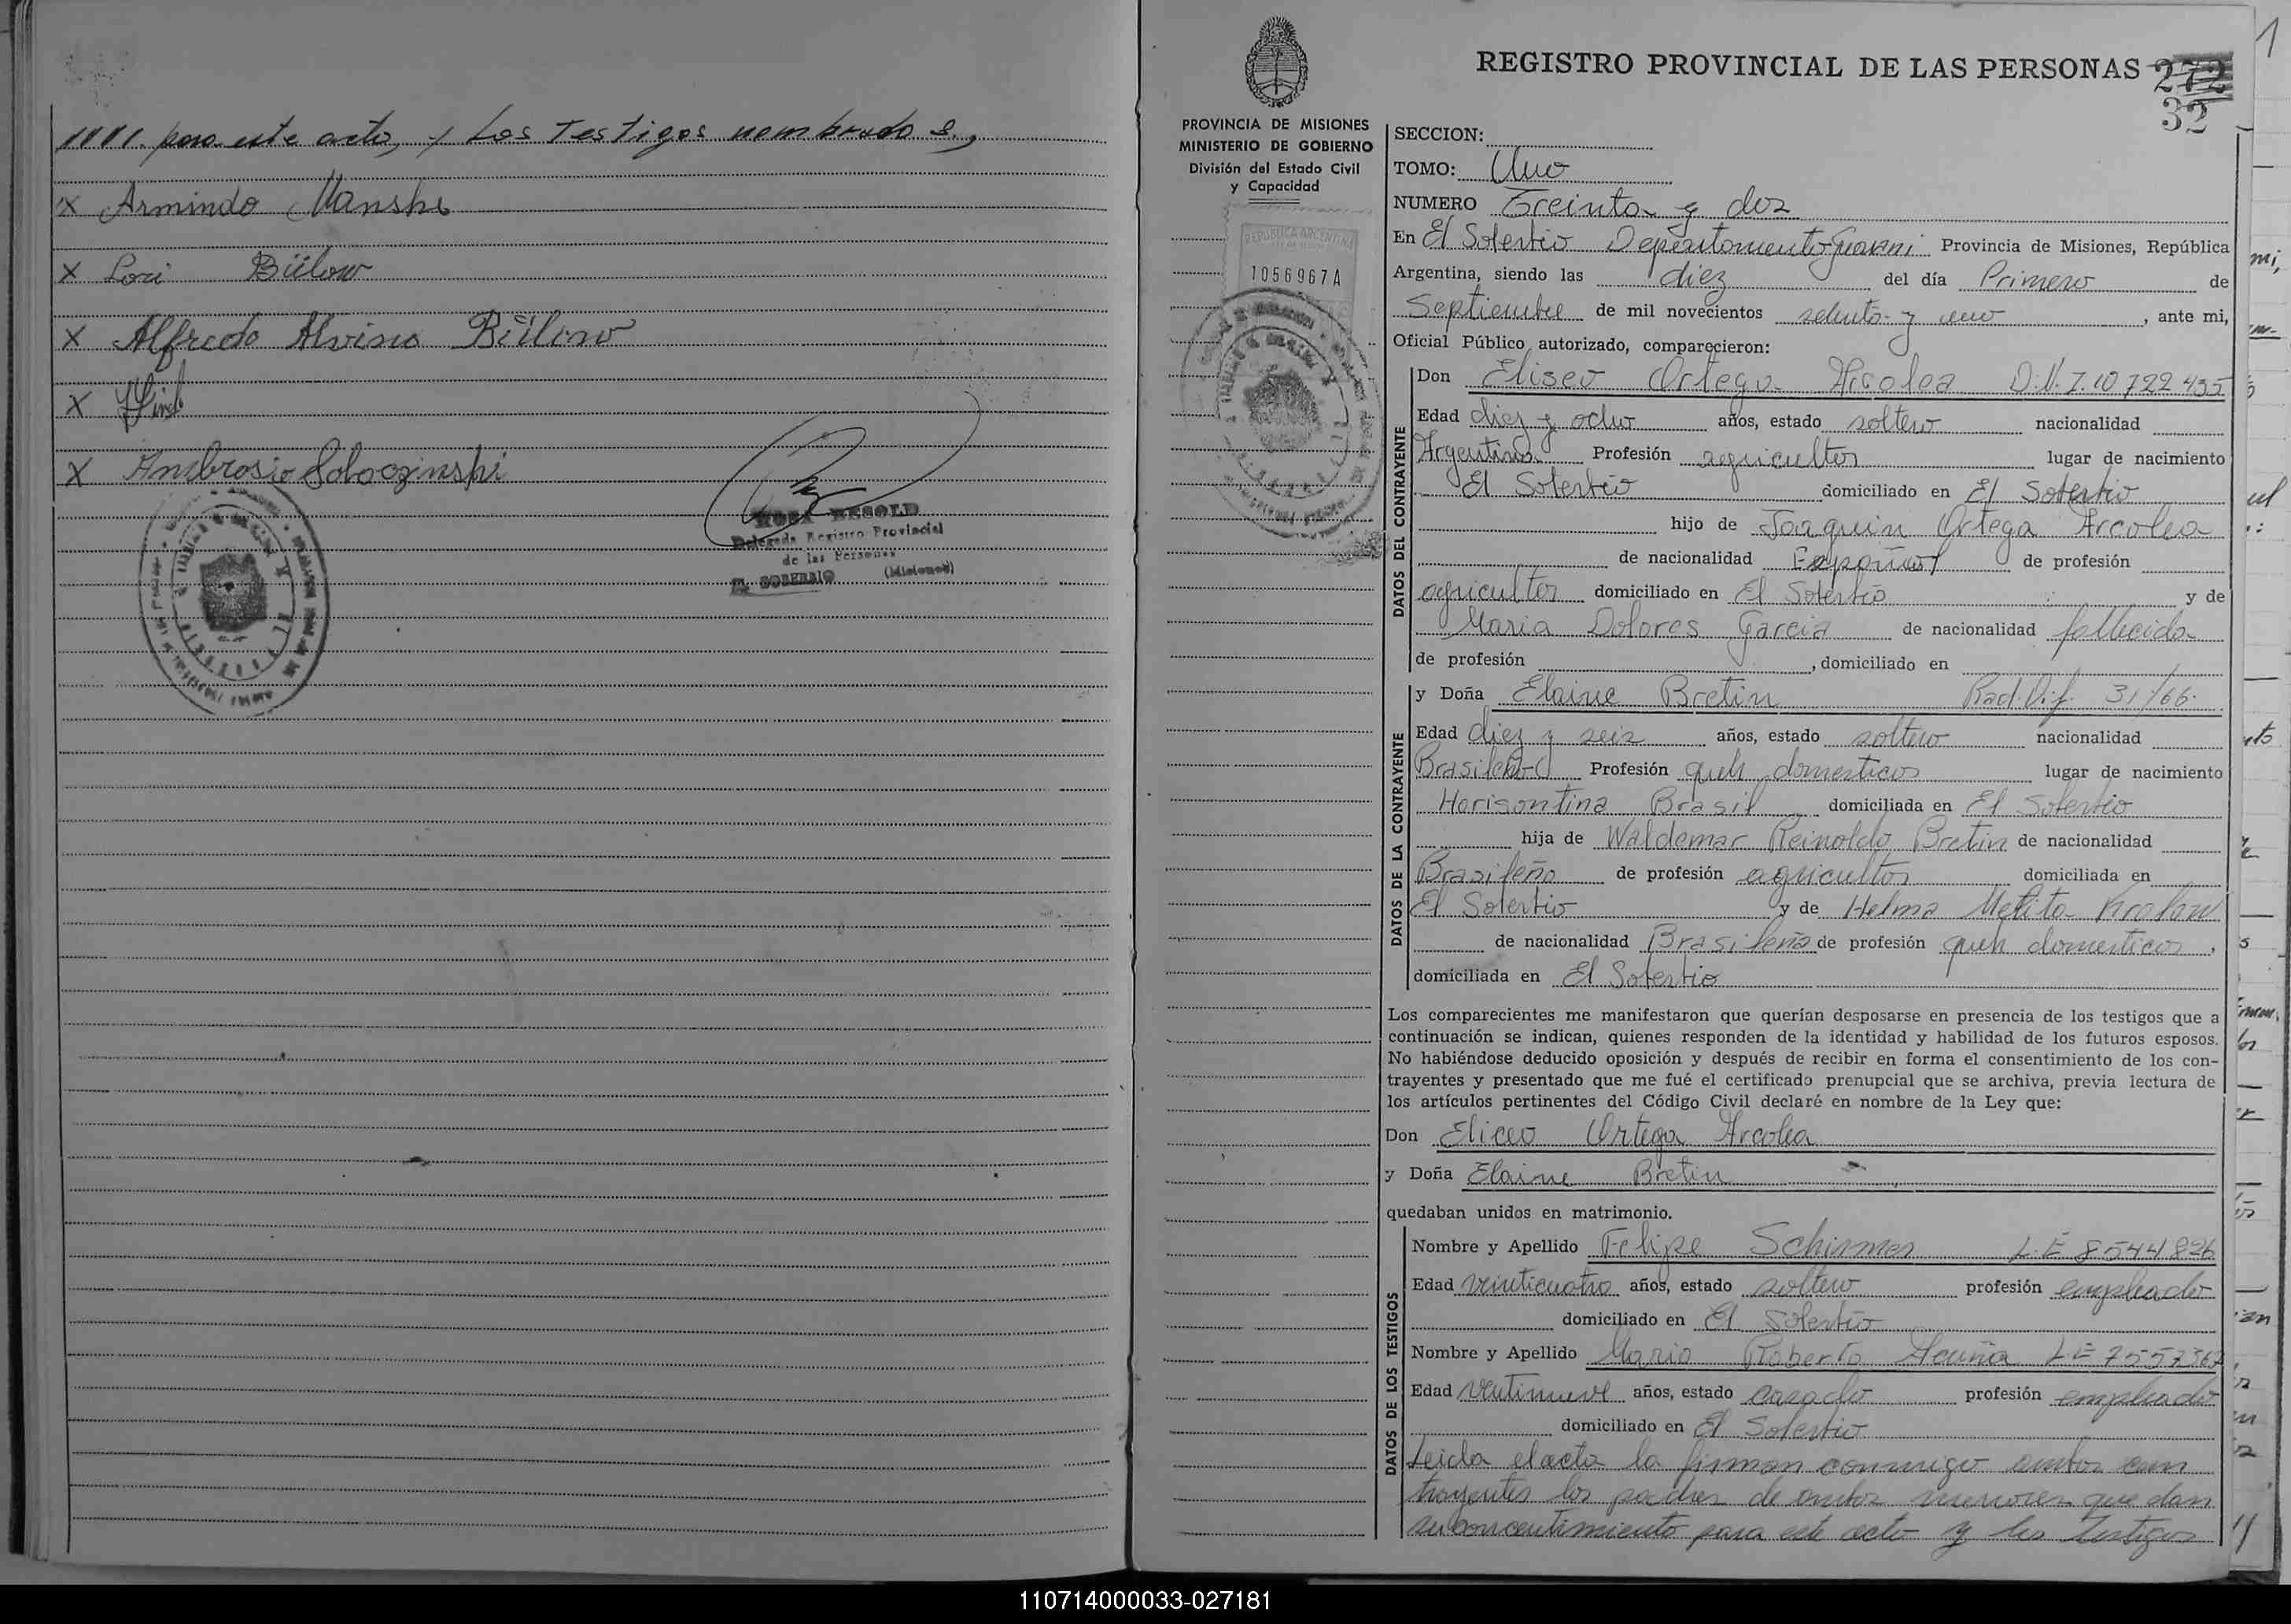 1111. para este acto, y Los Testigos nombrados.,
X Armindo Manshe
X Lori Bülow
X Alfredo Alvino Bülow
X
X Ambrosio Soboczinski
ROSA BESOLD
Delegada Registro Provincial
de las Personas
EL SOBERBIO (Misiones)
REGISTRO PROVINCIAL DE LAS PERSONAS 272
32
PROVINCIA DE MISIONES
MINISTERIO DE GOBIERNO
División del Estado Civil
y Capacidad
REPUBLICA ARGENTINA
1056967A
SECCION:
TOMO: Uno
NUMERO Treinta y dos
En El Soberbio Departamento Guarani Provincia de Misiones, República
Argentina, siendo las diez del día Primero de
Septiembre de mil novecientos setenta y uno, ante mi,
Oficial Público autorizado, comparecieron:
DATOS DEL CONTRAYENTE
Don Eliseo Ortega Arcolea D.N.I. 10 722 435
Edad diez y ocho años, estado soltero nacionalidad
Argentina Profesión agricultor lugar de nacimiento
El Soberbio domiciliado en El Soberbio
hijo de Joaquin Ortega Arcolea
de nacionalidad Español de profesión
agricultor domiciliado en El Soberbio y de
Maria Dolores Garcia de nacionalidad fallecida
de profesión , domiciliado en
DATOS DE LA CONTRAYENTE
y Doña Elaine Bretin Rad. Dif. 31/66.
Edad diez y seis años, estado soltero nacionalidad
Brasileño Profesión queh domesticos lugar de nacimiento
Horisontina Brasil domiciliada en El Soberbio
hija de Waldemar Reinoldo Bretin de nacionalidad
Brasileño de profesión agricultor domiciliada en
El Soberbio y de Helma Melita Krolow
de nacionalidad Brasileña de profesión queh domesticos,
domiciliada en El Soberbio
Los comparecientes me manifestaron que querían desposarse en presencia de los testigos que a
continuación se indican, quienes responden de la identidad y habilidad de los futuros esposos.
No habiéndose deducido oposición y después de recibir en forma el consentimiento de los con-
trayentes y presentado que me fué el certificado prenupcial que se archiva, previa lectura de
los artículos pertinentes del Código Civil declaré en nombre de la Ley que:
Don Eliceo Ortega Arcolea
y Doña Elaine Bretin
quedaban unidos en matrimonio.
DATOS DE LOS TESTIGOS
Nombre y Apellido Felipe Schirmer L.E 8544826
Edad veinticuatro años, estado soltero profesión empleado
domiciliado en El Soberbio
Nombre y Apellido Mario Roberto Acuña L.E 7557362
Edad veintinueve años, estado casado profesión empleado
domiciliado en El Soberbio
Leida el acta la firman conmigo ambos con
trayentes los padres de ambos menores que dan
su concentimiento para este acto y los testigos
110714000033-027181